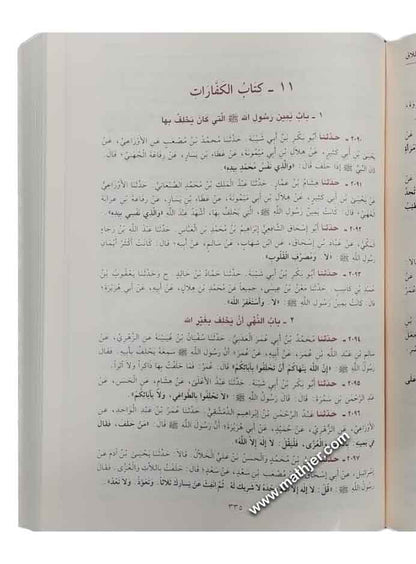 ١١ - كتابُ الكَفَّارَاتِ
١ - بَابُ يَمِينِ رَسُولِ اللهِ ﷺ الَّتِي كَانَ يَحْلِفُ بِهَا
٢٠٩٠ - حدّثنا أَبُو بَكْرِ بْنُ أَبِي شَيْبَةَ. حَدَّثَنَا مُحَمَّدُ بْنُ مُصْعَبٍ عَنِ الأَوْزَاعِيِّ، عَنْ
يَحْيَى بْنِ أَبِي كَثِيرٍ، عَنْ هِلَالِ بْنِ أَبِي مَيْمُونَةَ، عَنْ عَطَاءِ بْنِ يَسَارٍ، عَنْ رِفَاعَةَ الْجُهَنِيِّ؛ قَالَ:
النَّبِيُّ ﷺ إِذَا حَلَفَ قَالَ: «وَالَّذِي نَفْسُ مُحَمَّدٍ بِيَدِهِ».
٢٠٩١ - حدّثنا هِشَامُ بْنُ عَمَّارٍ. حَدَّثَنَا عَبْدُ الْمَلِكِ بْنُ مُحَمَّدٍ الصَّنْعَانِيُّ. حَدَّثَنَا الأَوْزَاعِيُّ
بْنِ أَبِي كَثِيرٍ، عَنْ هِلَالِ بْنِ أَبِي مَيْمُونَةَ، عَنْ عَطَاءِ بْنِ يَسَارٍ، عَنْ رِفَاعَةَ بْنِ عَرَابَةَ
قَالَ: كَانَتْ يَمِينُ رَسُولِ اللهِ ﷺ، الَّتِي يَحْلِفُ بِهَا، أَشْهَدُ عِنْدَ اللهِ «وَالَّذِي نَفْسِي بِيَدِهِ».
٢٠٩٢ - حدّثنا أَبُو إِسْحَاقَ الشَّافِعِيُّ إِبْرَاهِيمُ بْنُ مُحَمَّدِ بْنِ الْعَبَّاسِ. حَدَّثَنَا عَبْدُ اللهِ بْنُ رَجَاءٍ
الْمَكِّيُّ، عَنْ عَبَّادِ بْنِ إِسْحَاقَ، عَنِ ابْنِ شِهَابٍ، عَنْ سَالِمٍ، عَنْ أَبِيهِ؛ قَالَ: كَانَتْ أَكْثَرُ أَيْمَانِ
رَسُولِ اللهِ ﷺ: «لَا وَمُصَرِّفِ الْقُلُوبِ».
٢٠٩٣ - حدّثنا أَبُو بَكْرِ بْنُ أَبِي شَيْبَةَ. حَدَّثَنَا حَمَّادُ بْنُ خَالِدٍ. ح وَحَدَّثَنَا يَعْقُوبُ بْنُ
حَدَّثَنَا مَعْنُ بْنُ عِيسَى، جَمِيعًا عَنْ مُحَمَّدِ بْنِ هِلَالٍ، عَنْ أَبِيهِ، عَنْ أَبِي هُرَيْرَةَ؛
كَانَتْ يَمِينُ رَسُولِ اللهِ ﷺ: «لَا وَأَسْتَغْفِرُ اللهَ».
٢ - بَابُ النَّهْيِ أَنْ يُحْلَفَ بِغَيْرِ اللهِ
٢٠٩٤ - حدّثنا مُحَمَّدُ بْنُ أَبِي عُمَرَ الْعَدَنِيُّ. حَدَّثَنَا سُفْيَانُ بْنُ عُيَيْنَةَ عَنِ الزُّهْرِيِّ، عَنْ
سَالِمِ بْنِ عَبْدِ اللهِ بْنِ عُمَرَ، عَنْ أَبِيهِ، عَنْ عُمَرَ؛ أَنَّ رَسُولَ اللهِ ﷺ سَمِعَهُ يَحْلِفُ بِأَبِيهِ.
رَسُولُ اللهِ ﷺ: «إِنَّ اللهَ يَنْهَاكُمْ أَنْ تَحْلِفُوا بِآبَائِكُمْ». قَالَ عُمَرُ: فَمَا حَلَفْتُ بِهَا ذَاكِرًا وَلَا آثِرًا.
٢٠٩٥ - حدّثنا أَبُو بَكْرِ بْنُ أَبِي شَيْبَةَ. حَدَّثَنَا عَبْدُ الأَعْلَى، عَنْ هِشَامٍ، عَنِ الْحَسَنِ، عَنْ
عَبْدِ الرَّحْمَنِ بْنِ سَمُرَةَ؛ قَالَ: قَالَ رَسُولُ اللهِ ﷺ: «لَا تَحْلِفُوا بِالطَّوَاغِي، وَلَا بِآبَائِكُمْ».
٢٠٩٦ - حدّثنا عَبْدُ الرَّحْمَنِ بْنُ إِبْرَاهِيمَ الدِّمَشْقِيُّ. حَدَّثَنَا عُمَرُ بْنُ عَبْدِ الْوَاحِدِ، عَنِ
عَنِ الزُّهْرِيِّ، عَنْ حُمَيْدٍ، عَنْ أَبِي هُرَيْرَةَ؛ أَنَّ رَسُولَ اللهِ ﷺ قَالَ: «مَنْ حَلَفَ، فَقَالَ
فِي يَمِينِهِ وَالْعُزَّى، فَلْيَقُلْ: لَا إِلَهَ إِلَّا اللهُ».
٢٠٩٧ - حدّثنا عَلِيُّ بْنُ مُحَمَّدٍ وَالْحَسَنُ بْنُ عَلِيٍّ الْخَلَّالُ. قَالَا: حَدَّثَنَا يَحْيَى بْنُ آدَمَ عَنْ
إِسْرَائِيلَ، عَنْ أَبِي إِسْحَاقَ، عَنْ مُصْعَبِ بْنِ سَعْدٍ، عَنْ سَعْدٍ؛ قَالَ: حَلَفْتُ بِاللَّاتِ وَالْعُزَّى. فَقَالَ
رَسُولُ اللهِ ﷺ: «قُلْ: لَا إِلَهَ إِلَّا اللهُ وَحْدَهُ لَا شَرِيكَ لَهُ. ثُمَّ انْفُثْ عَنْ يَسَارِكَ ثَلَاثًا. وَتَعَوَّذْ. وَلَا تَعُدْ».
٣٣٥
www.mathjer.com